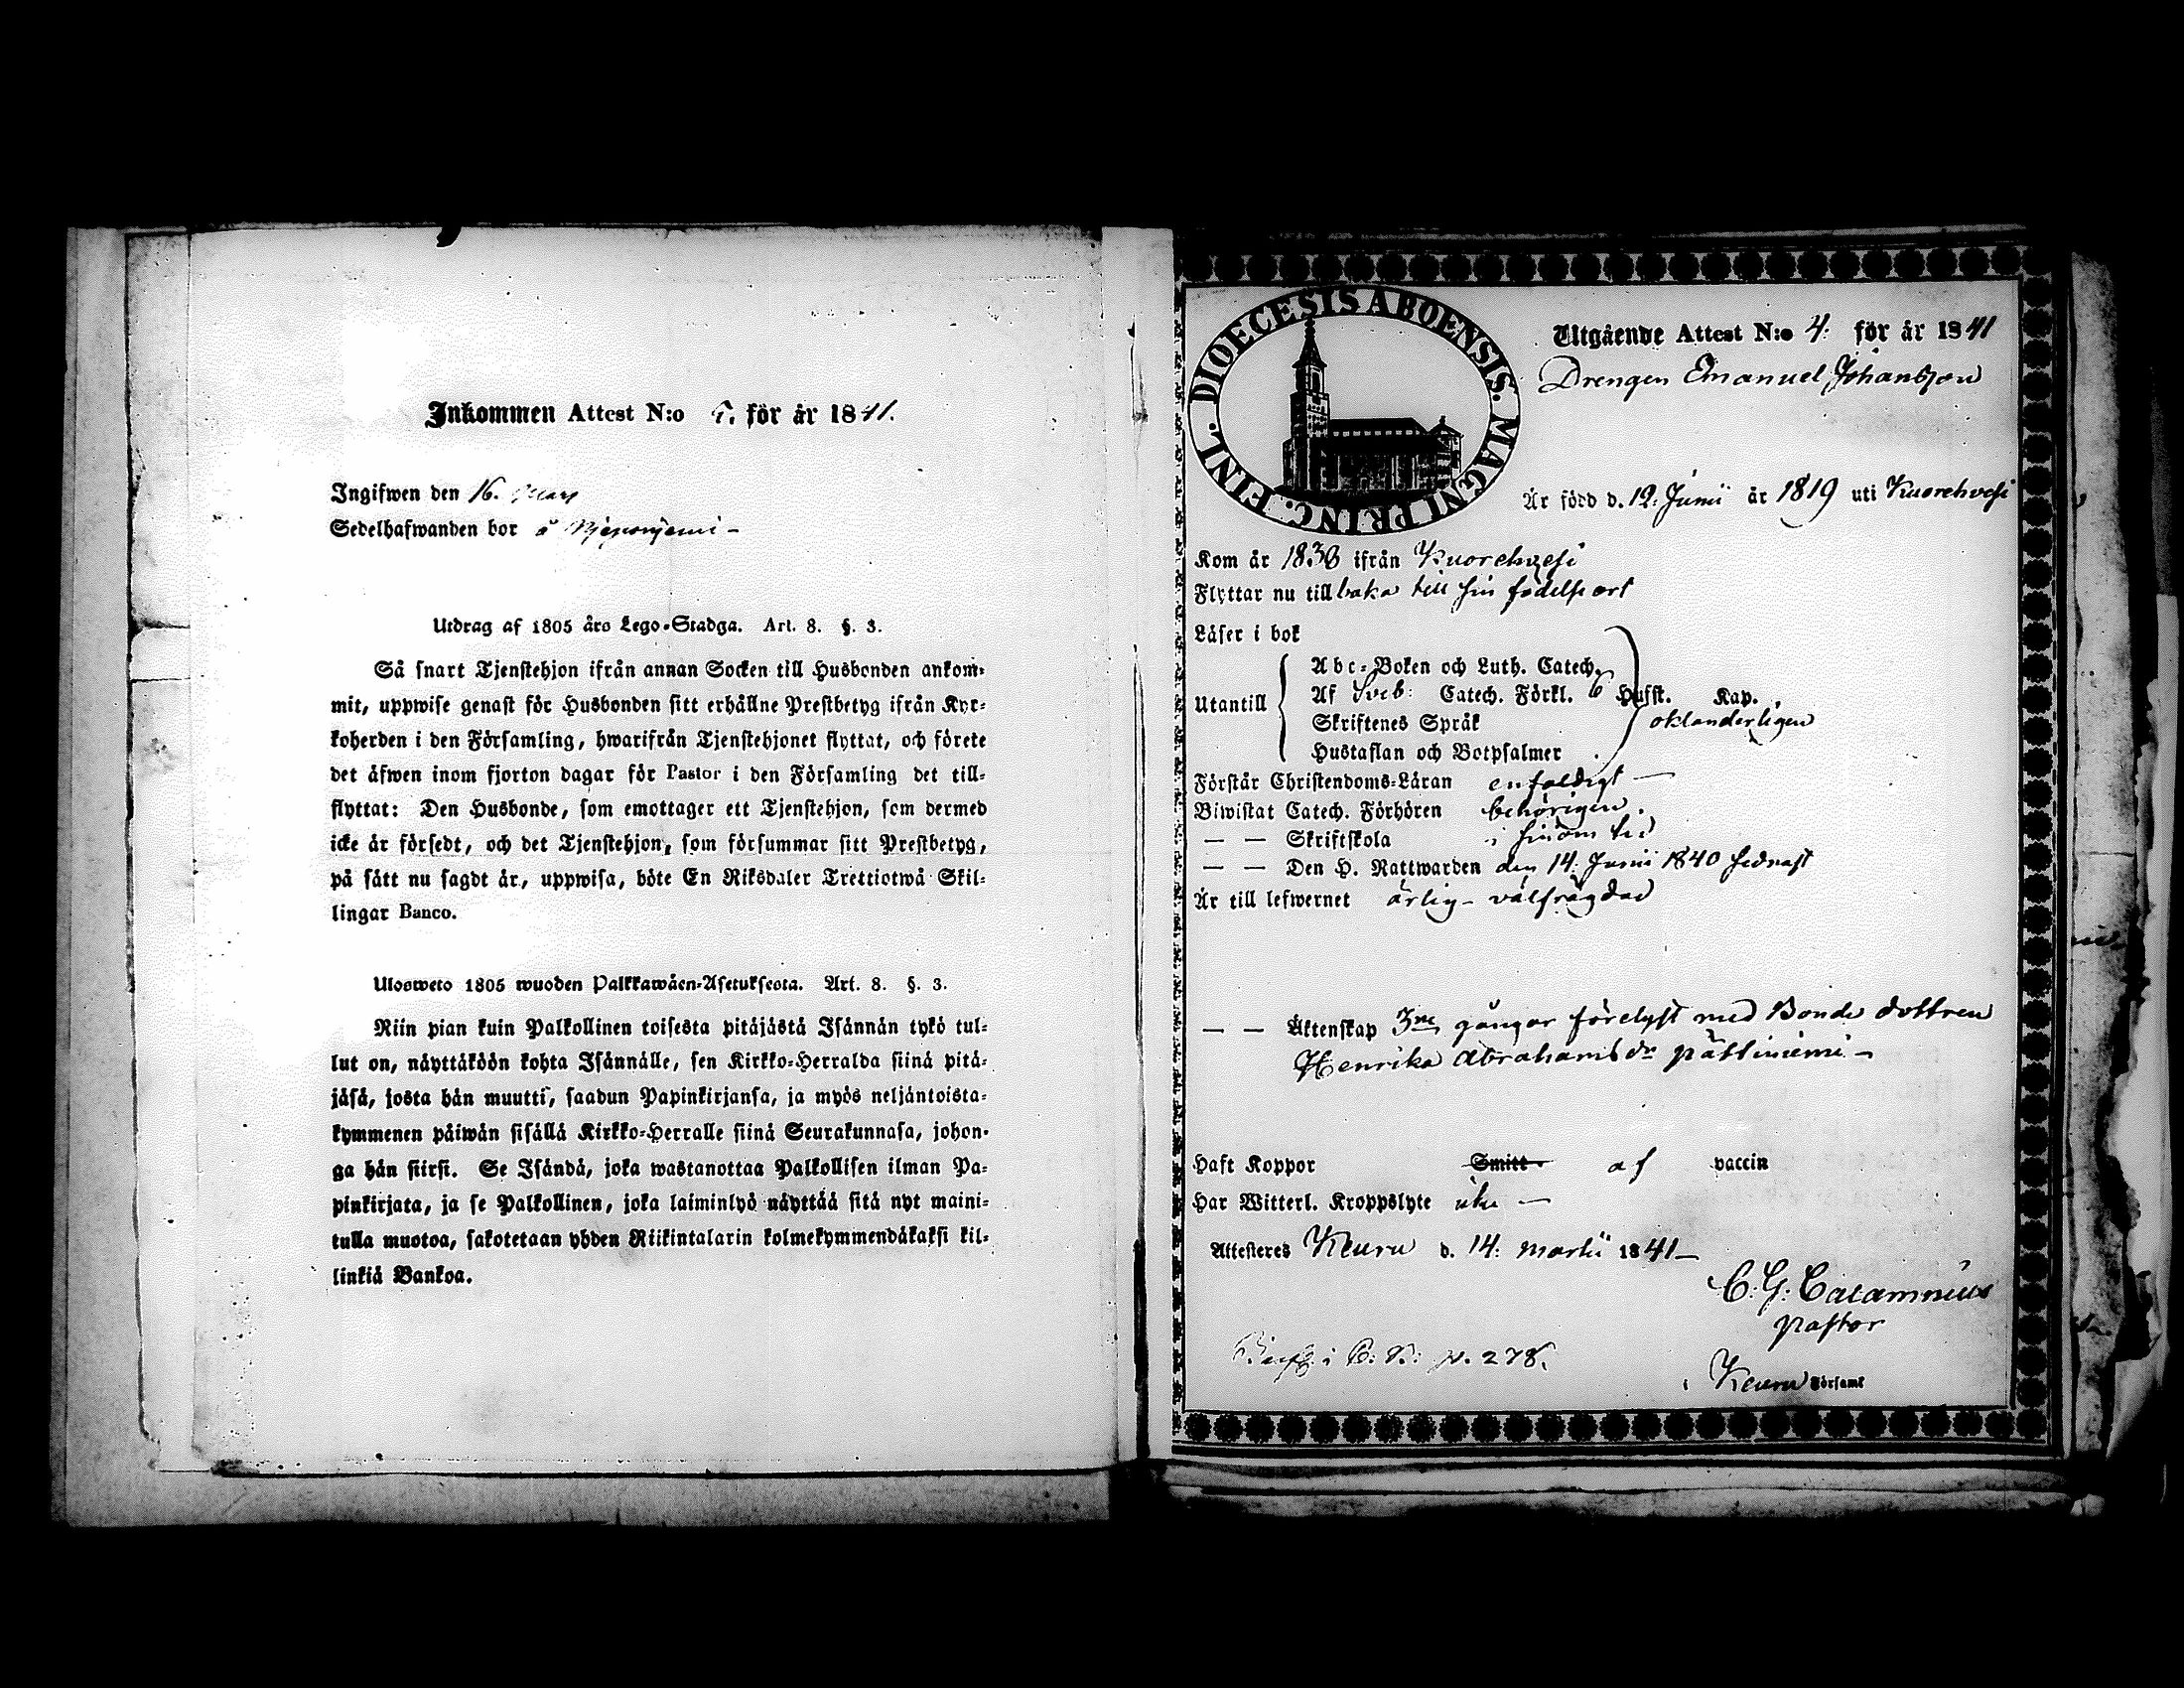 Inkommen Attest N:o 7. för år 1841.
Ingifwen den 16. Mars
Sedelhafwanden bor å
Utdrag af 1805 års Lego-Stadga. Art. 8. §. 3.
Så snart Tjenstehjon ifrån annan Socken till Husbonden ankom-
mit, uppwise genast för Husbonden sitt erhållne Prestbetyg ifrån Kyr-
koherden i den Församling, hwarifrån Tjenstehjonet flyttat, och förete
det äfwen inom fjorton dagar för Pastor i den Församling det till-
flyttat: Den Husbonde, som emottager ett Tjenstehjon, som dermed
icke är försedt, och det Tjenstehjon, som försummar sitt Prestbetyg,
på sätt nu sagdt är, uppwisa, böte En Riksdaler Trettiotwå Skil-
lingar Banco.
Ulosweto 1805 wuoden Palkkawäen-Asetuksesta. Art. 8. §. 3.
Niin pian kuin Palkollinen toisesta pitäjästä Isännän tykö tul-
lut on, näyttäköön kohta Isännälle, sen Kirkko-Herralda siinä pitä-
jäsä, josta hän muutti, saadun Papinkirjansa, ja myös neljäntoista-
kymmenen päiwän sisällä Kirkko-Herralle siinä Seurakunnasa, johon-
ga hän siirsi. Se Isändä, joka wastanottaa Palkollisen ilman Pa-
pinkirjata, ja se Palkollinen, joka laiminlyö näyttää sitä nyt maini-
tulla muotoa, sakotetaan yhden Riikintalarin kolmekymmendäkaksi kil-
linkiä Bankoa.
DIOECESIS ABOENSIS. MAGNI PRINC. FINL.
Utgående Attest N:o 4. för år 1841
Drengen Emanuel Johansson
Är född d. 12. Junii år 1819 uti Kuorehvesi
Kom år 1838 ifrån Kuorehvesi
Flyttar nu till baka till sin födelse ort
Läser i bok
Utantill
Abc-Boken och Luth. Catech.
Af Sveb: Catech. Förkl. 6 Husst. Kap.
Skriftenes Språk oklanderligen
Hustaflan och Botpsalmer
Förstår Christendoms-Läran enfaldigt —
Biwistat Catech. Förhören behörigen.
— — Skriftskola i sinom tid
— — Den H. Nattwarden den 14. Junii 1840 sednast
Är till lefwernet ärlig - välfrägdad
— — Äktenskap 3ne gångor förelyst med Bonde dottren
Henrika Abrahamsdr Pättiniemi —
Haft Koppor Smitt af vaccin
Har Witterl. Kroppslyte icke —
Attesteres Keuru d. 14. Martii 1841 —
C. G. Calamnius
Pastor
i B: p. 278.
i Keuru Församl